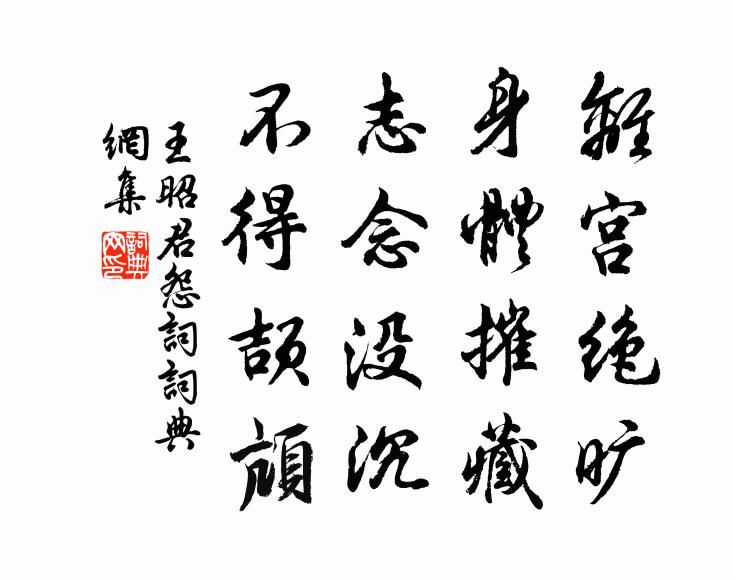 離宫绝旷
身體摧藏
志念没沉
不得頡頏
王昭君怨詞詞典
網集
詞典
网印